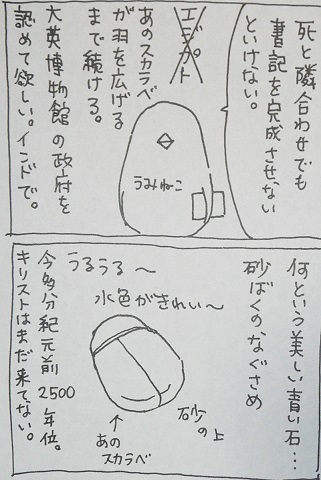 死と隣合わせでも
書記を完成させない
といけない。
エジプト
あのスカラベ
が羽を広げる
まで続ける。
大英博物館の政府を
認めて欲しい。インドで。
うみねこ
何という美しい青い石…
砂ばくのなぐさめ
うるうる〜
水色がきれい〜
砂の上
↑
あの
スカラベ
今多分紀元前2500年位。
キリストはまだ来てない。